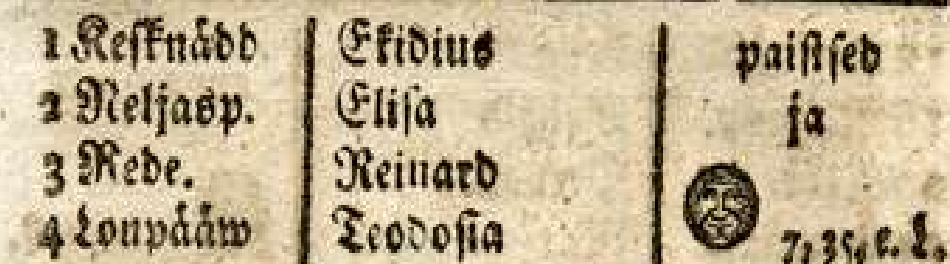 1 Keſknädd Ekidius paiſtſed
2 Neljasp. Eliſa ja
3 Rede. Reinard
4 Loupääw Teodoſia 7, 35, e. L.